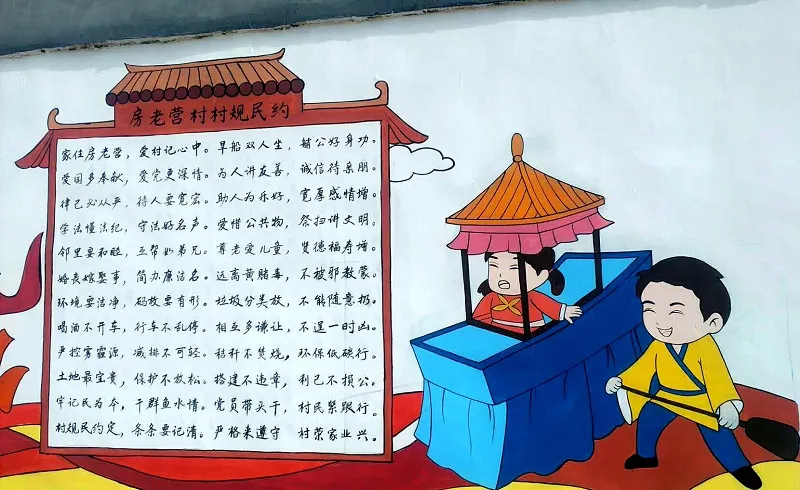 房老营村村规民约
家住房老营，爱村记心中。旱船双人坐，辅公好身功。
爱国多奉献，爱党更深情。为人讲友善，诚信待亲朋。
律己必从严，待人要宽宏。助人为乐好，宽厚感情增。
学法懂法纪，守法好名声。爱惜公共物，祭扫讲文明。
邻里要和睦，互帮如弟兄。尊老爱儿童，贤德福寿增。
婚丧嫁娶事，简办廉洁名。远离黄赌毒，不被邪教蒙。
环境要洁净，码放要有形。垃圾分类放，不能随意扔。
喝酒不开车，行车不乱停。相互多谦让，不逞一时凶。
严控雾霾源，减排不可轻。秸秆不焚烧，环保低碳行。
土地最宝贵，保护不放松。搭建不违章，利己不损公。
牢记民为本，干群鱼水情。党员带头干，村民紧跟行。
村规民约定，条条要记清。严格来遵守 村荣家业兴。